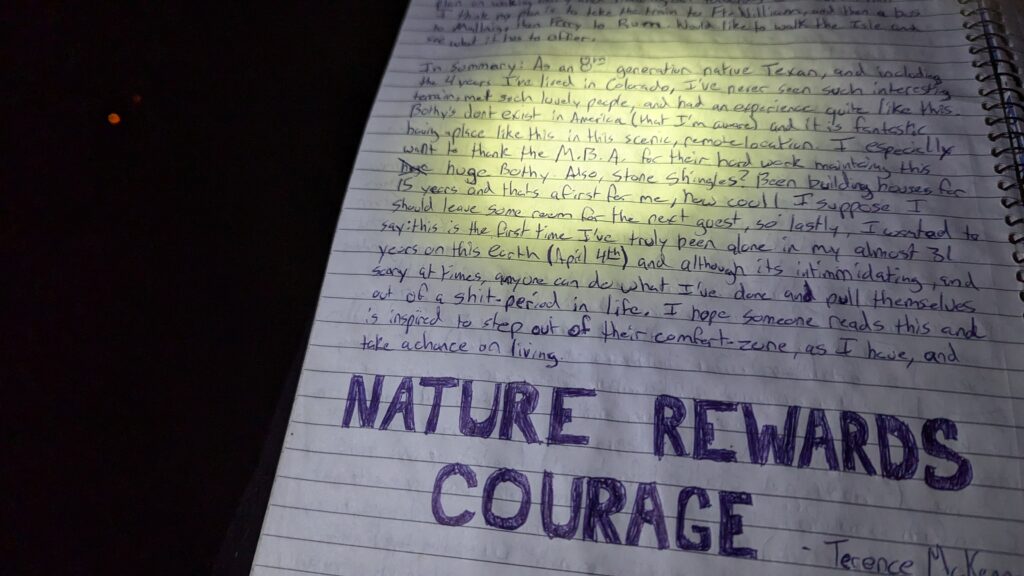 plan on walking
I think my plan is to take the train to Ft. William, and then a bus
to Mallaig, then Ferry to Rum. Would like to walk the Isle and
see what it has to offer.
In summary: As an 8th generation native Texan, and including
the 4 years I've lived in Colorado, I've never seen such interesting
terrain, met such lovely people, and had an experience quite like this.
Bothy's dont exist in America (that I'm aware) and it is fantastic
having a place like this in this scenic, remote location. I especially
want to thank the M.B.A. for their hard work maintaining this
huge Bothy. Also, stone shingles? Been building houses for
15 years and thats a first for me, how cool! I suppose I
should leave some room for the next guest, so lastly, I wanted to
say: this is the first time I've truly been alone in my almost 31
years on this earth (April 4th) and although its intimmidating, and
scary at times, anyone can do what I've done and pull themselves
out of a shit-period in life. I hope someone reads this and
is inspired to step out of their comfort-zone, as I have, and
take a chance on living.
NATURE REWARDS
COURAGE
- Terence